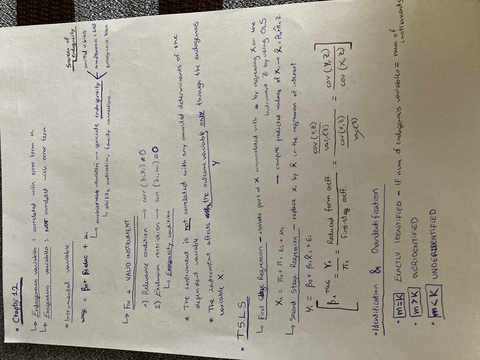 • Chapter 12
↳ Endogenous variables : correlated with error term u
↳ Exogenous variables : not correlated with error term
Sources of Endogeneity
omitted v. bias
simultaneous c. bias
errors-in-v. bias
• Instrumental variable
↳ unobserved variables → generate endogeneity
↳ ability, motivation, family connections...
wage = β0 + β1educ + ui
↳ For a VALID INSTRUMENT
1) Relevance condition → corr (zi, xi) ≠ 0
2) Exclusion restriction → corr (zi, ui) = 0
↳ Exogeneity condition
* The instrument is not correlated with any omitted determinants of the
dependent variable
* The instrument affects the outcome variable only through the endogenous
variable X.
Y
• TSLS
↳ First Stage Regression - isolate part of X uncorrelated with u by regressing X on the
instrument Z by using OLS
Xi = π0 + π1 Zi + vi
→ compute predicted values of Xi → X̂i = π̂0 + π̂1 Zi
↳ Second Stage Regression - replace Xi by X̂i in the regression of interest
Yi = β0 + β1 X̂i + εi
β1 TSLS = γ1 / π1 = Reduced form coeff. / First-stage coeff. = cov(Y,Z) / var(Z) / cov(X,Z) / var(Z) = cov (Y, Z) / cov (X, Z)
• Identification & Overidentification
• m=k EXACTLY IDENTIFIED - if num of endogenous variables = num of
instruments
• m>k OVERIDENTIFIED
• m<k UNDERIDENTIFIED